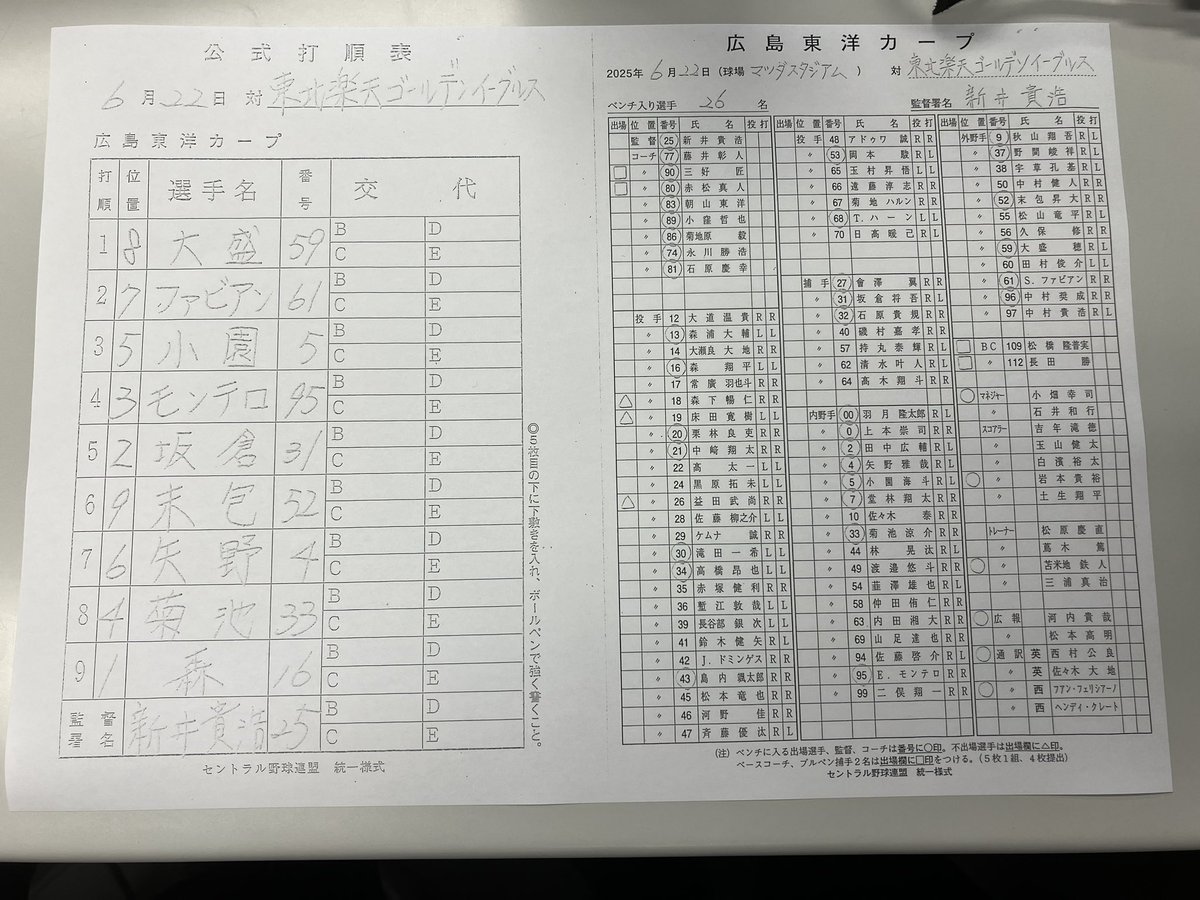 公式打順表
6月22日 対 東北楽天ゴールデンイーグルス
広島東洋カープ
打順 位置 選手名 番号 交代
1 8 大盛 59 B D C E
2 7 ファビアン 61 B D C E
3 5 小園 5 B D C E
4 3 モンテロ 95 B D C E
5 2 坂倉 31 B D C E
6 9 末包 52 B D C E
7 6 矢野 4 B D C E
8 4 菊池 33 B D C E
9 1 森 16 B D C E
監督署名 新井貴浩 25 B D C E
セントラル野球連盟 統一様式
◎5枚目の下に下敷きを入れ、ボールペンで強く書くこと。
広島東洋カープ
2025年 6月22日 (球場 マツダスタジアム) 対 東北楽天ゴールデンイーグルス
ベンチ入り選手 26 名 監督署名 新井貴浩
出場 位置 番号 氏名 投 打
監督 25 新井貴浩
コーチ 77 藤井彰人
□ 〃 90 三好匠
□ 〃 80 赤松真人
〃 83 朝山東洋
〃 89 小窪哲也
〃 86 菊地原毅
〃 74 永川勝浩
〃 81 石原慶幸
投手 12 大道温貴 R R
〃 13 森浦大輔 L L
〃 14 大瀬良大地 R R
〃 16 森翔平 L L
〃 17 常廣羽也斗 R R
△ 〃 18 森下暢仁 R R
△ 〃 19 床田寛樹 L L
〃 20 栗林良吏 R R
〃 21 中﨑翔太 R R
〃 22 高太一 L L
〃 24 黒原拓未 L L
△ 〃 26 益田武尚 R R
〃 28 佐藤柳之介 L L
〃 29 ケムナ誠 R R
〃 30 滝田一希 L L
〃 34 高橋昂也 L L
〃 35 赤塚健利 R R
〃 36 塹江敦哉 L L
〃 39 長谷部銀次 L L
〃 41 鈴木健矢 R L
〃 42 J.ドミンゲス R R
〃 43 島内颯太郎 R R
〃 45 松本竜也 R R
〃 46 河野佳 R R
〃 47 斉藤優汰 R L
出場 位置 番号 氏名 投 打
投手 48 アドゥワ誠 R R
〃 53 岡本駿 R L
〃 65 玉村昇悟 L L
〃 66 遠藤淳志 R R
〃 67 菊地ハルン R R
〃 68 T.ハーン L L
〃 70 日髙暖己 R R
捕手 27 會澤翼 R R
〃 31 坂倉将吾 R L
〃 32 石原貴規 R R
〃 40 磯村嘉孝 R R
〃 57 持丸泰輝 R L
〃 62 清水叶人 R L
〃 64 髙木翔斗 R R
内野手 00 羽月隆太郎 R L
〃 0 上本崇司 R R
〃 2 田中広輔 R L
〃 4 矢野雅哉 R L
〃 5 小園海斗 R L
〃 7 堂林翔太 R R
〃 10 佐々木泰 R R
〃 33 菊池涼介 R R
〃 44 林晃汰 R L
〃 49 渡邉悠斗 R R
〃 54 韮澤雄也 R L
〃 58 仲田侑仁 R R
〃 63 内田湘大 R R
〃 69 山足達也 R R
〃 94 佐藤啓介 R L
〃 95 E.モンテロ R R
〃 99 二俣翔一 R R
出場 位置 番号 氏名 投 打
外野手 9 秋山翔吾 R L
〃 37 野間峻祥 R L
〃 38 宇草孔基 R L
〃 50 中村健人 R R
〃 52 末包昇大 R R
〃 55 松山竜平 R L
〃 56 久保修 R R
〃 59 大盛穂 R L
〃 60 田村俊介 L L
〃 61 S.ファビアン R R
〃 96 中村奨成 R R
〃 97 中村貴浩 R L
□ BC 109 松橋隆普実
□ 〃 112 長田勝
○ マネジャー 小畑幸司
〃 石井和行
スコアラー 吉年滝徳
〃 玉山健太
〃 白濱裕太
○ 〃 岩本貴裕
〃 土生翔平
トレーナー 松原慶直
〃 蔦木篤
○ 〃 苫米地鉄人
〃 三浦真治
○ 広報 河内貴哉
〃 松本高明
○ 通訳 英 西村公良
〃 英 佐々木大地
○ 〃 西 フアン・フェリシアーノ
西 ヘンディ・クレート
(注) ベンチに入る出場選手、監督、コーチは番号に○印。不出場選手は出場欄に△印。
ベースコーチ、ブルペン捕手2名は出場欄に□印をつける。(5枚1組、4枚提出)
セントラル野球連盟 統一様式